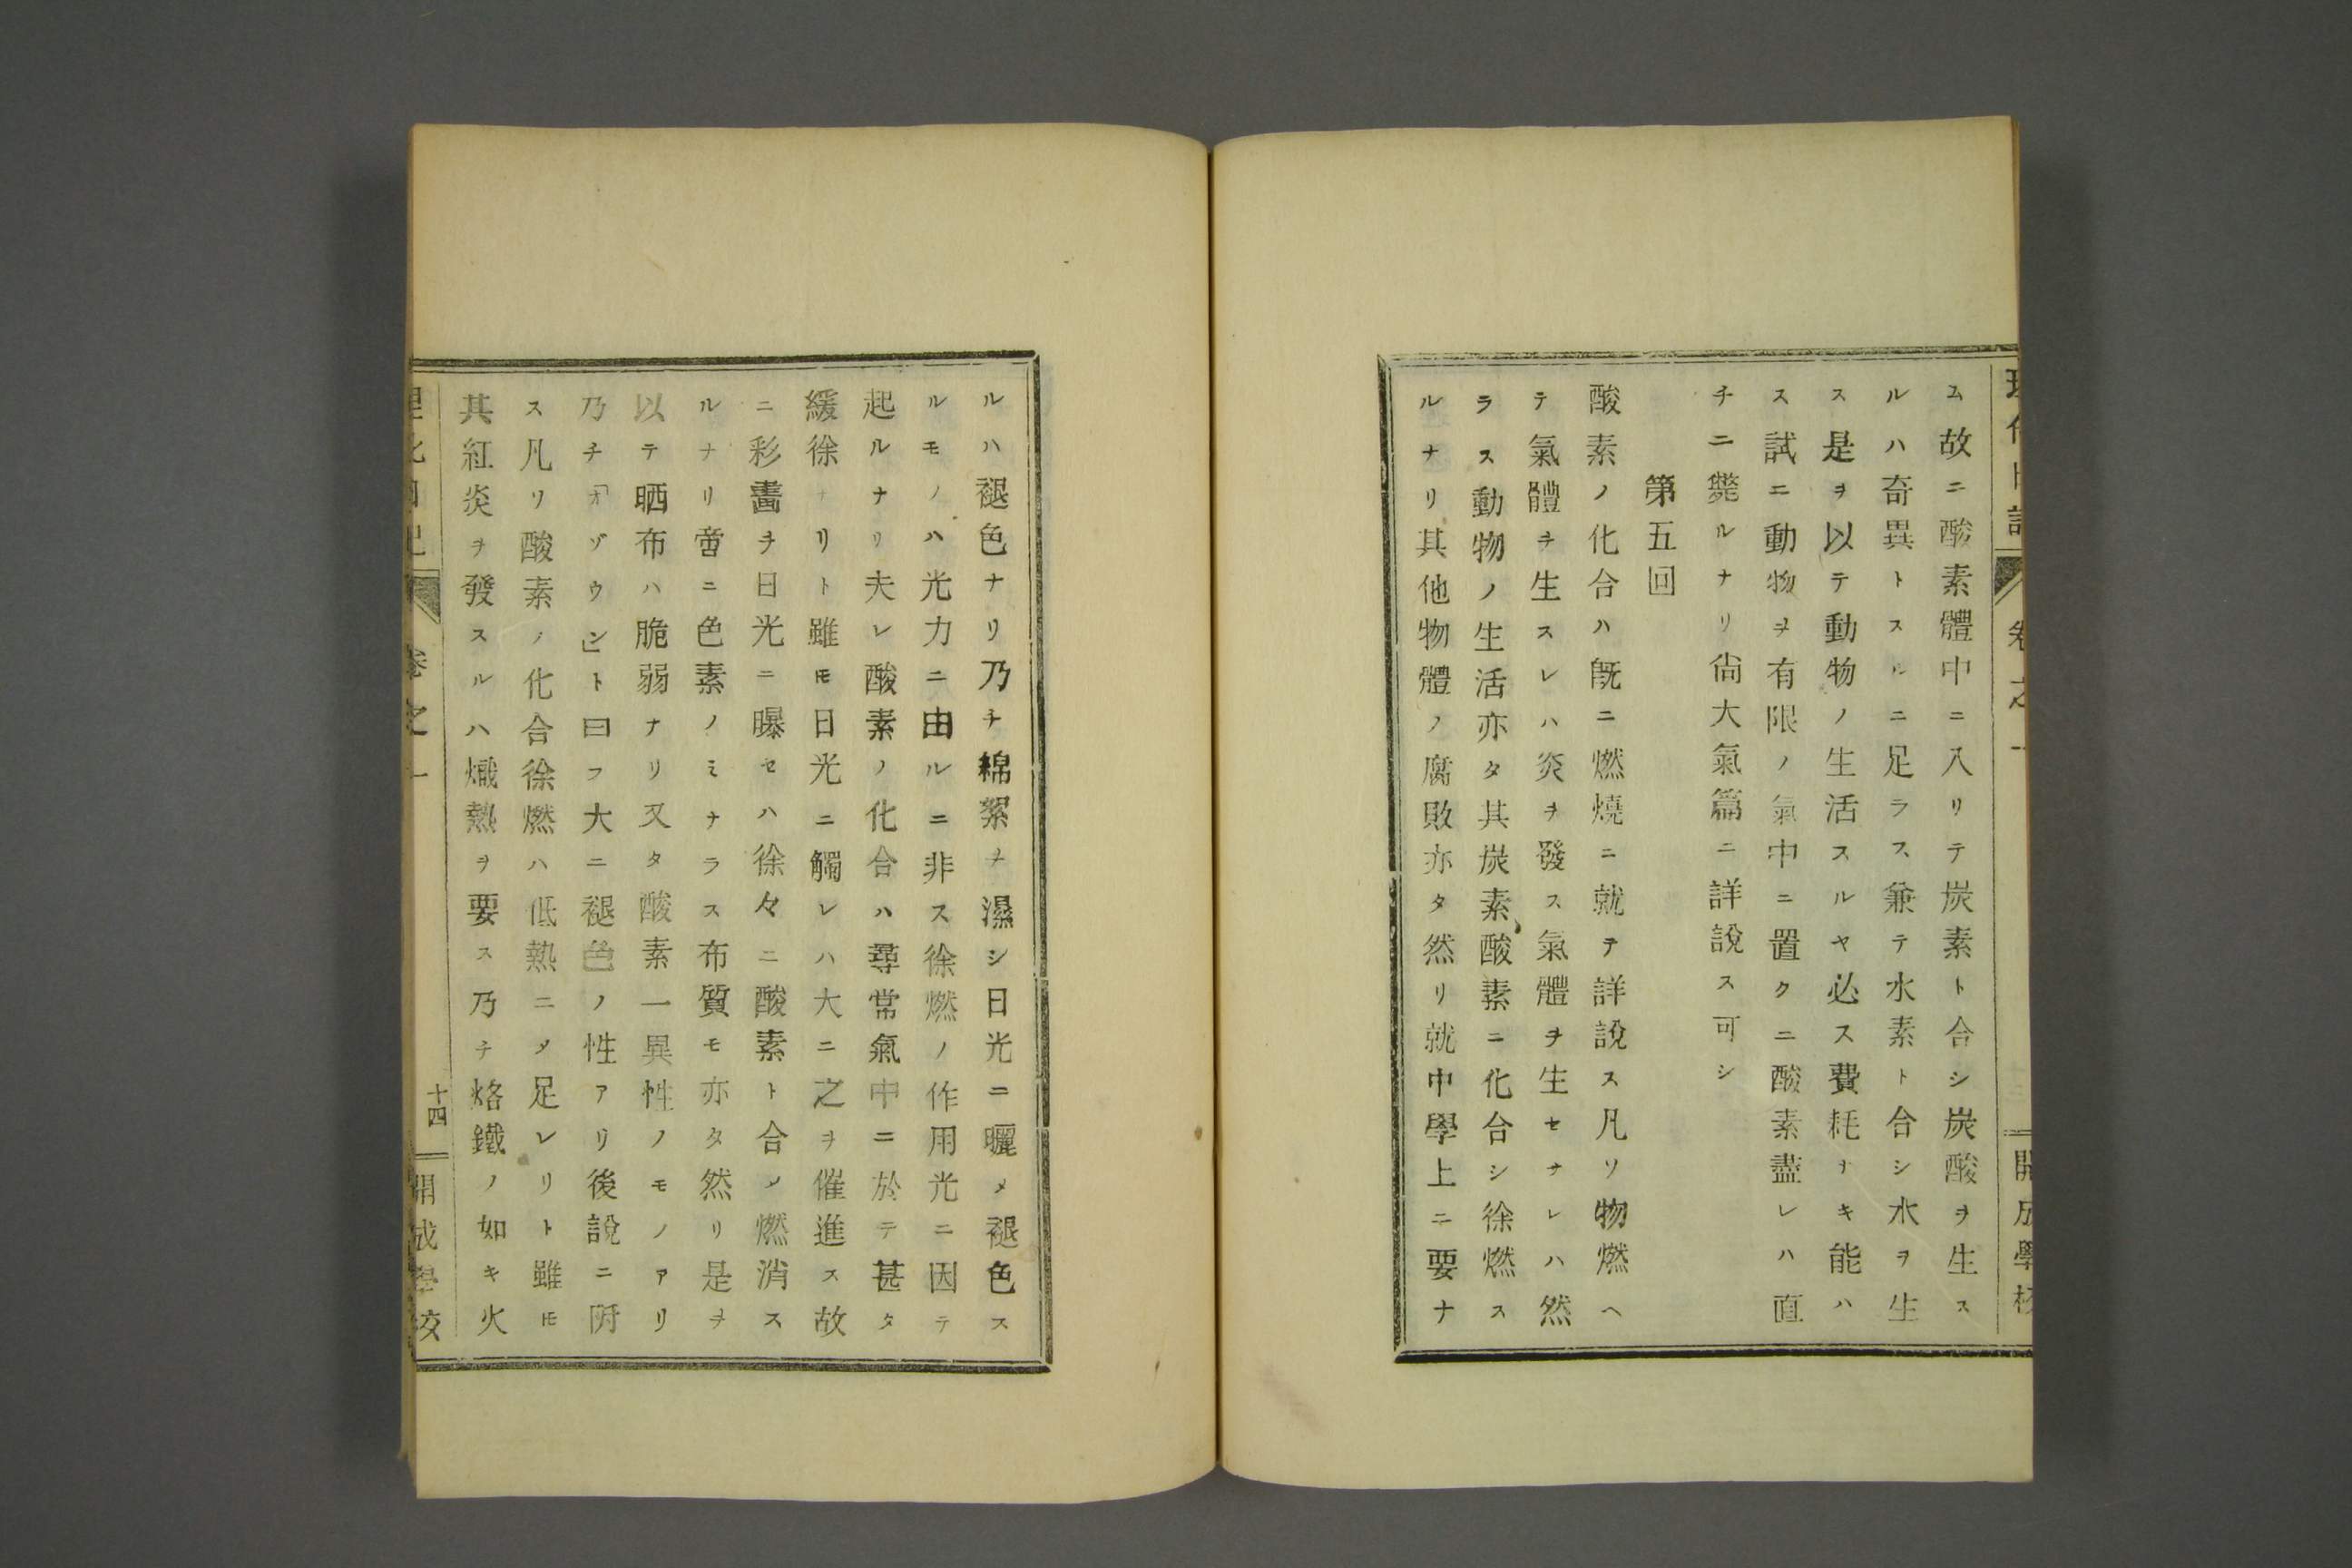 ム故ニ酸素體中ニ入リテ炭素ト合シ炭酸ヲ生ス
ルハ奇異トスルニ足ラス兼テ水素ト合シ水ヲ生
ス是ヲ以テ動物ノ生活スルヤ必ス費耗ナキ能ハ
ス試ニ動物ヲ有限ノ氣中ニ置クニ酸素盡レハ直
チニ斃ルナリ尙大氣篇ニ詳說ス可シ
第五回
酸素ノ化合ハ旣ニ燃燒ニ就テ詳說ス凡ソ物燃ヘ
テ氣體ヲ生スレハ炎ヲ發ス氣體ヲ生セサレハ然
ラス動物ノ生活亦タ其炭素酸素ニ化合シ徐燃ス
ルナリ其他物體ノ腐敗亦タ然リ就中學上ニ要ナ
ルハ褪色ナリ乃チ綿絮ヲ濕シ日光ニ曬メ褪色ス
ルモノハ光力ニ由ルニ非ス徐燃ノ作用光ニ因テ
起ルナリ夫レ酸素ノ化合ハ尋常氣中ニ於テ甚タ
緩徐ナリト雖モ日光ニ觸レハ大ニ之ヲ催進ス故
ニ彩畵ヲ日光ニ曝セハ徐々ニ酸素ト合メ燃消ス
ルナリ啻ニ色素ノミナラス布質モ亦タ然リ是ヲ
以テ晒布ハ脆弱ナリ又タ酸素一異性ノモノアリ
乃チ「オゾウン」ト曰フ大ニ褪色ノ性アリ後說ニ附
ス凡リ酸素ノ化合徐燃ハ低熱ニメ足レリト雖モ
其紅炎ヲ發スルハ熾熱ヲ要ス乃チ烙鐵ノ如キ火
卷之一
十四
開成學校